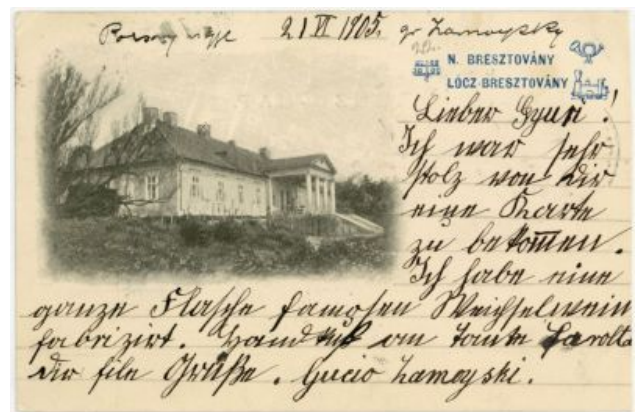 21 VI 1905. gr Zamoyszky
N. BRESZTOVÁNY
LÓCZ-BRESZTOVÁNY
Lieber Gyuri!
Ich war sehr
stolz von dir
eine Charte
zu bekommen.
Ich habe eine
ganze Flasche famosen Weichselwein
fabrizirt. Handkuß an Tante Sarolta
dir file Grüße. Gucio Zamoyski.